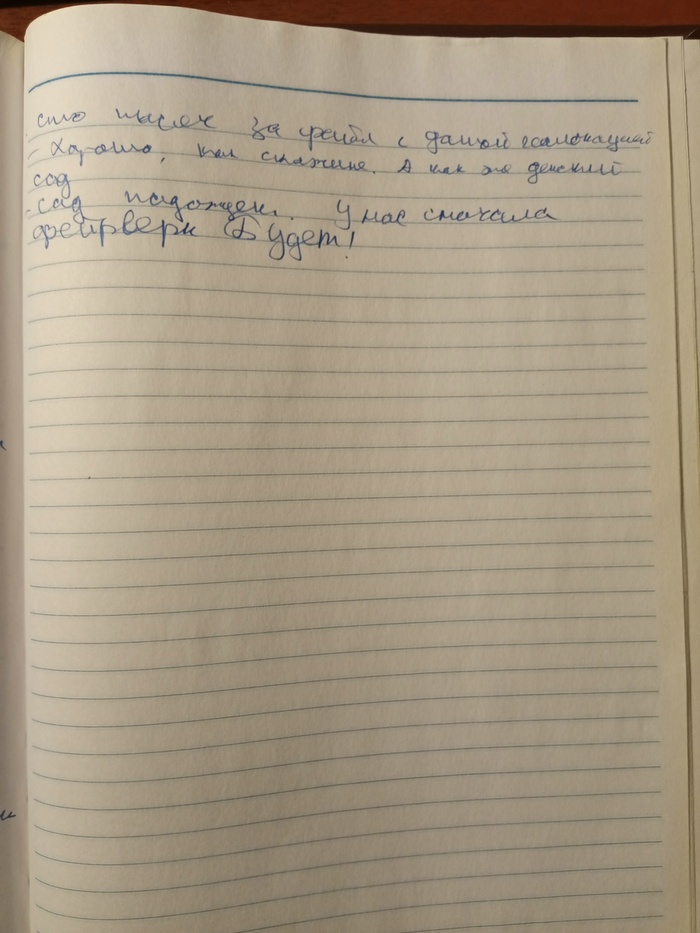 сто тысяч за файл с данной
- Хорошо, как скажите. А как же денский
сад
- сад подождеи. У нас сначала
фейрверк Будет!